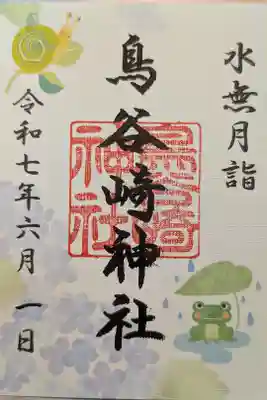 水無月詣
鳥谷崎神社
令和七年六月一日